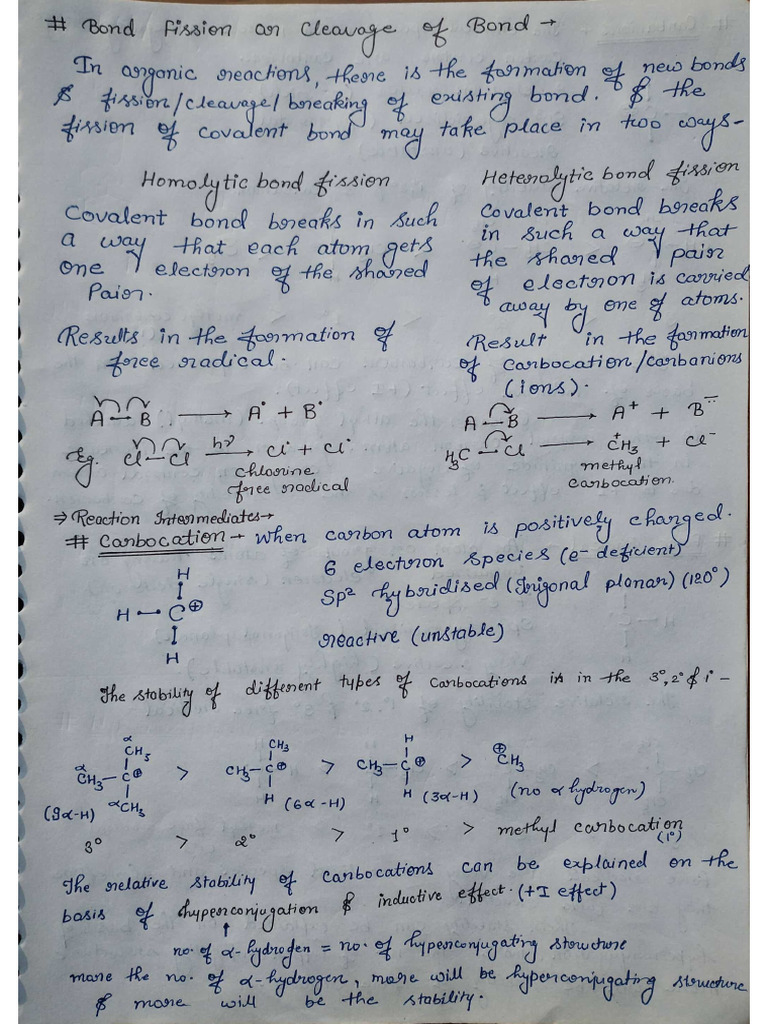 # Bond Fission or Cleavage of Bond →
In organic reactions, there is the formation of new bonds
& fission/cleavage/breaking of existing bond. & the
fission of covalent bond may take place in two ways-
Homolytic bond fission
Covalent bond breaks in such
a way that each atom gets
one electron of the shared
Pair.
Results in the formation of
free radical.
A—B → A• + B•
Eg. Cl—Cl hν→ Cl• + Cl•
chlorine
free radical
Heterolytic bond fission
Covalent bond breaks
in such a way that
the shared pair
of electron is carried
away by one of atoms.
Result in the formation
of carbocation/carbanions
(ions).
A—B → A⁺ + B⁻
H₃C—Cl → C⁺H₃ + Cl⁻
methyl
carbocation.
⇒ Reaction Intermediates→
# Carbocation → when carbon atom is positively charged.
6 electron species (e⁻ deficient)
Sp² hybridised (Trigonal planar) (120°)
reactive (unstable)
H
H—C⊕
H
The stability of different types of Carbocations is in the 3°, 2° & 1° –
α
CH₃ CH₃ H
α
CH₃—C⊕ > CH₃—C⊕ > CH₃—C⊕ > ⊕CH₃
αCH₃ H H
(9α-H) (6α-H) (3α-H) (no α hydrogen)
3° > 2° > 1° > methyl carbocation
(1°)
The relative stability of carbocations can be explained on the
basis of hyperconjugation & inductive effect. (+I effect)
↑
no. of α-hydrogen = no. of hyperconjugating structure
more the no. of α-hydrogen, more will be hyperconjugating structure
& more will be the stability.